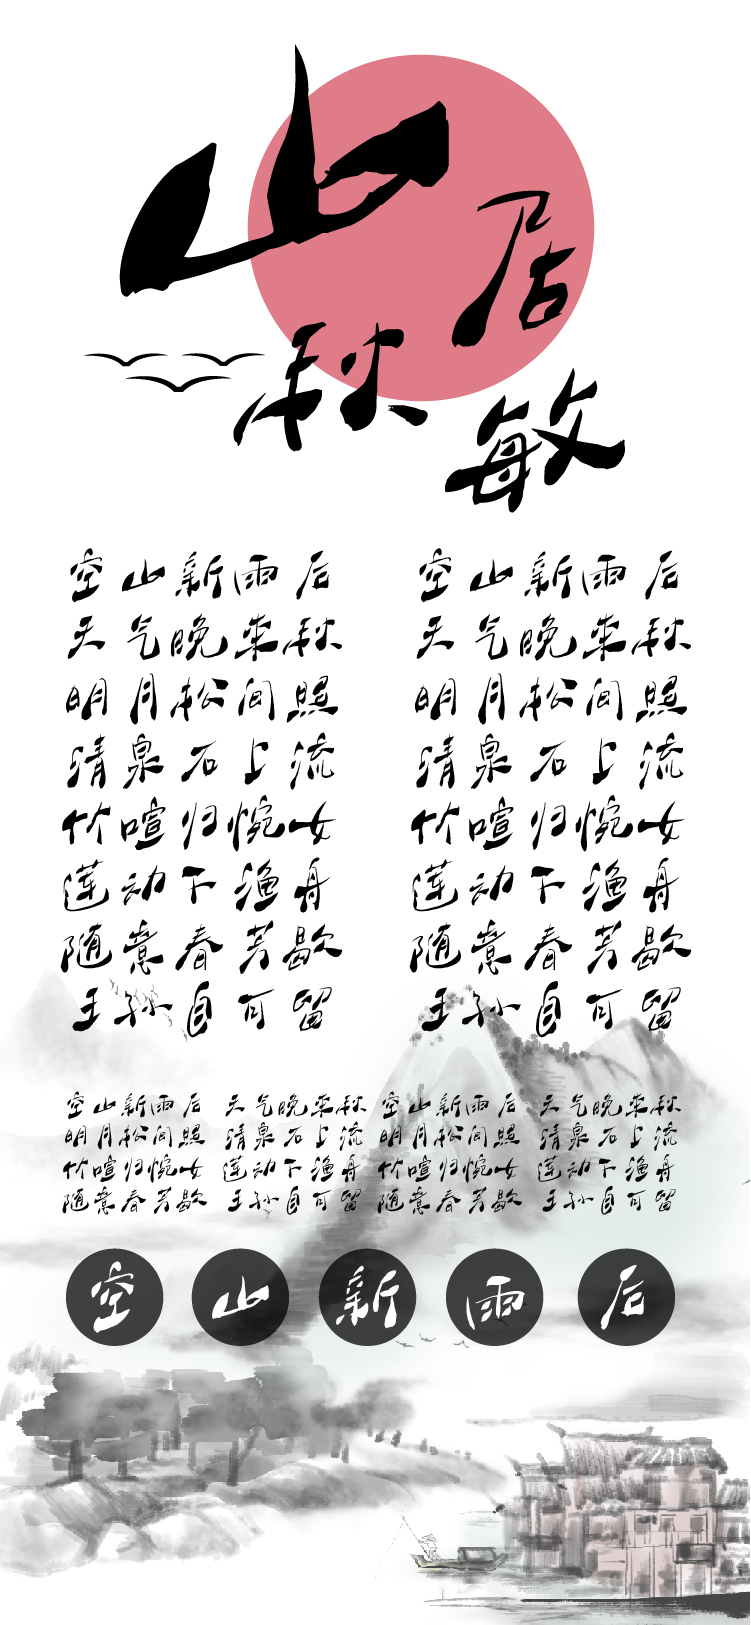 山居
秋敏
空山新雨后
天气晚来秋
明月松间照
清泉石上流
竹喧归惋女
莲动下渔舟
随意春芳歇
王孙自可留
空山新雨后
天气晚来秋
明月松间照
清泉石上流
竹喧归惋女
莲动下渔舟
随意春芳歇
王孙自可留
空山新雨后 天气晚来秋
明月松间照 清泉石上流
竹喧归惋女 莲动下渔舟
随意春芳歇 王孙自可留
空山新雨后 天气晚来秋
明月松间照 清泉石上流
竹喧归惋女 莲动下渔舟
随意春芳歇 王孙自可留
空山新雨后